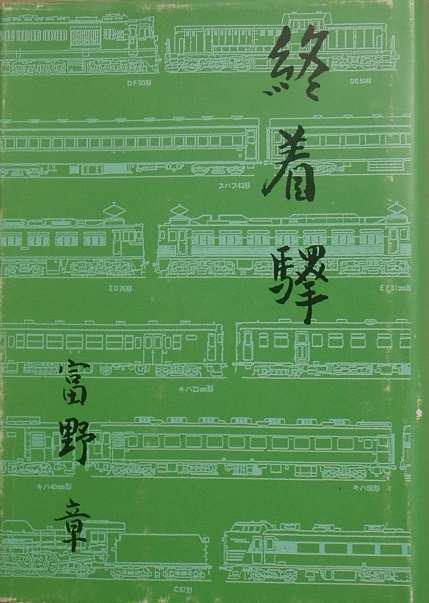 終着驛
富野章
DF50形
DE50形
スハフ42形
ED76形
キハ22形
キハ40形
キハ56形
C57形